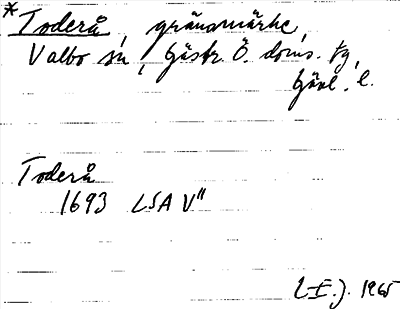 * Toderå, gränsmärke,
Valbo sn, Gästr. Ö. doms. tg,
Gävl. l.
Toderå
1693 LSA V"
L-E. J. 1965